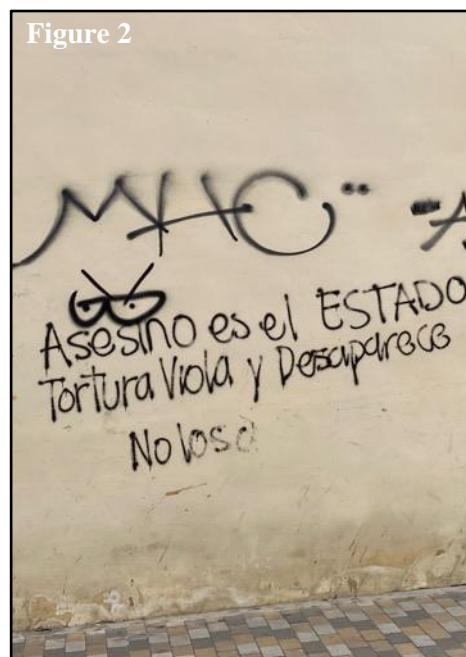 Figure 2
MHC
Asesino es el ESTADO
Tortura Viola y Desaparece
No los